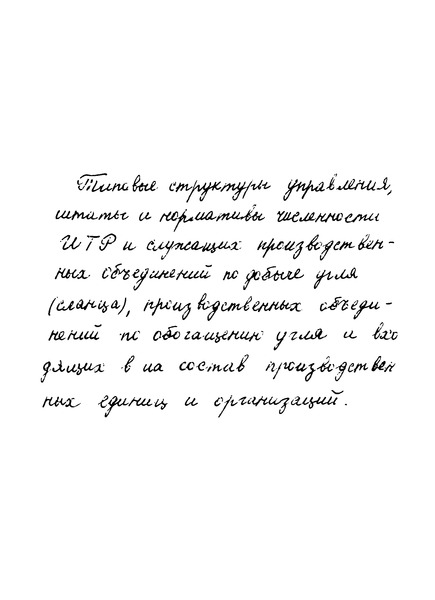 Типовые структуры управления,
штаты и нормативы численности
ИТР и служащих производствен-
ных объединений по добыче угля
(сланца), производственных объеди-
нений по обогащению угля и вхо
дящих в их состав производствен
ных единиц и организаций.